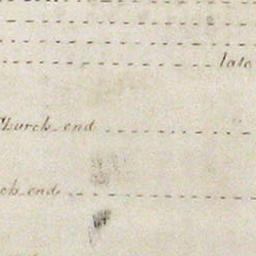 late
Church end
ch end